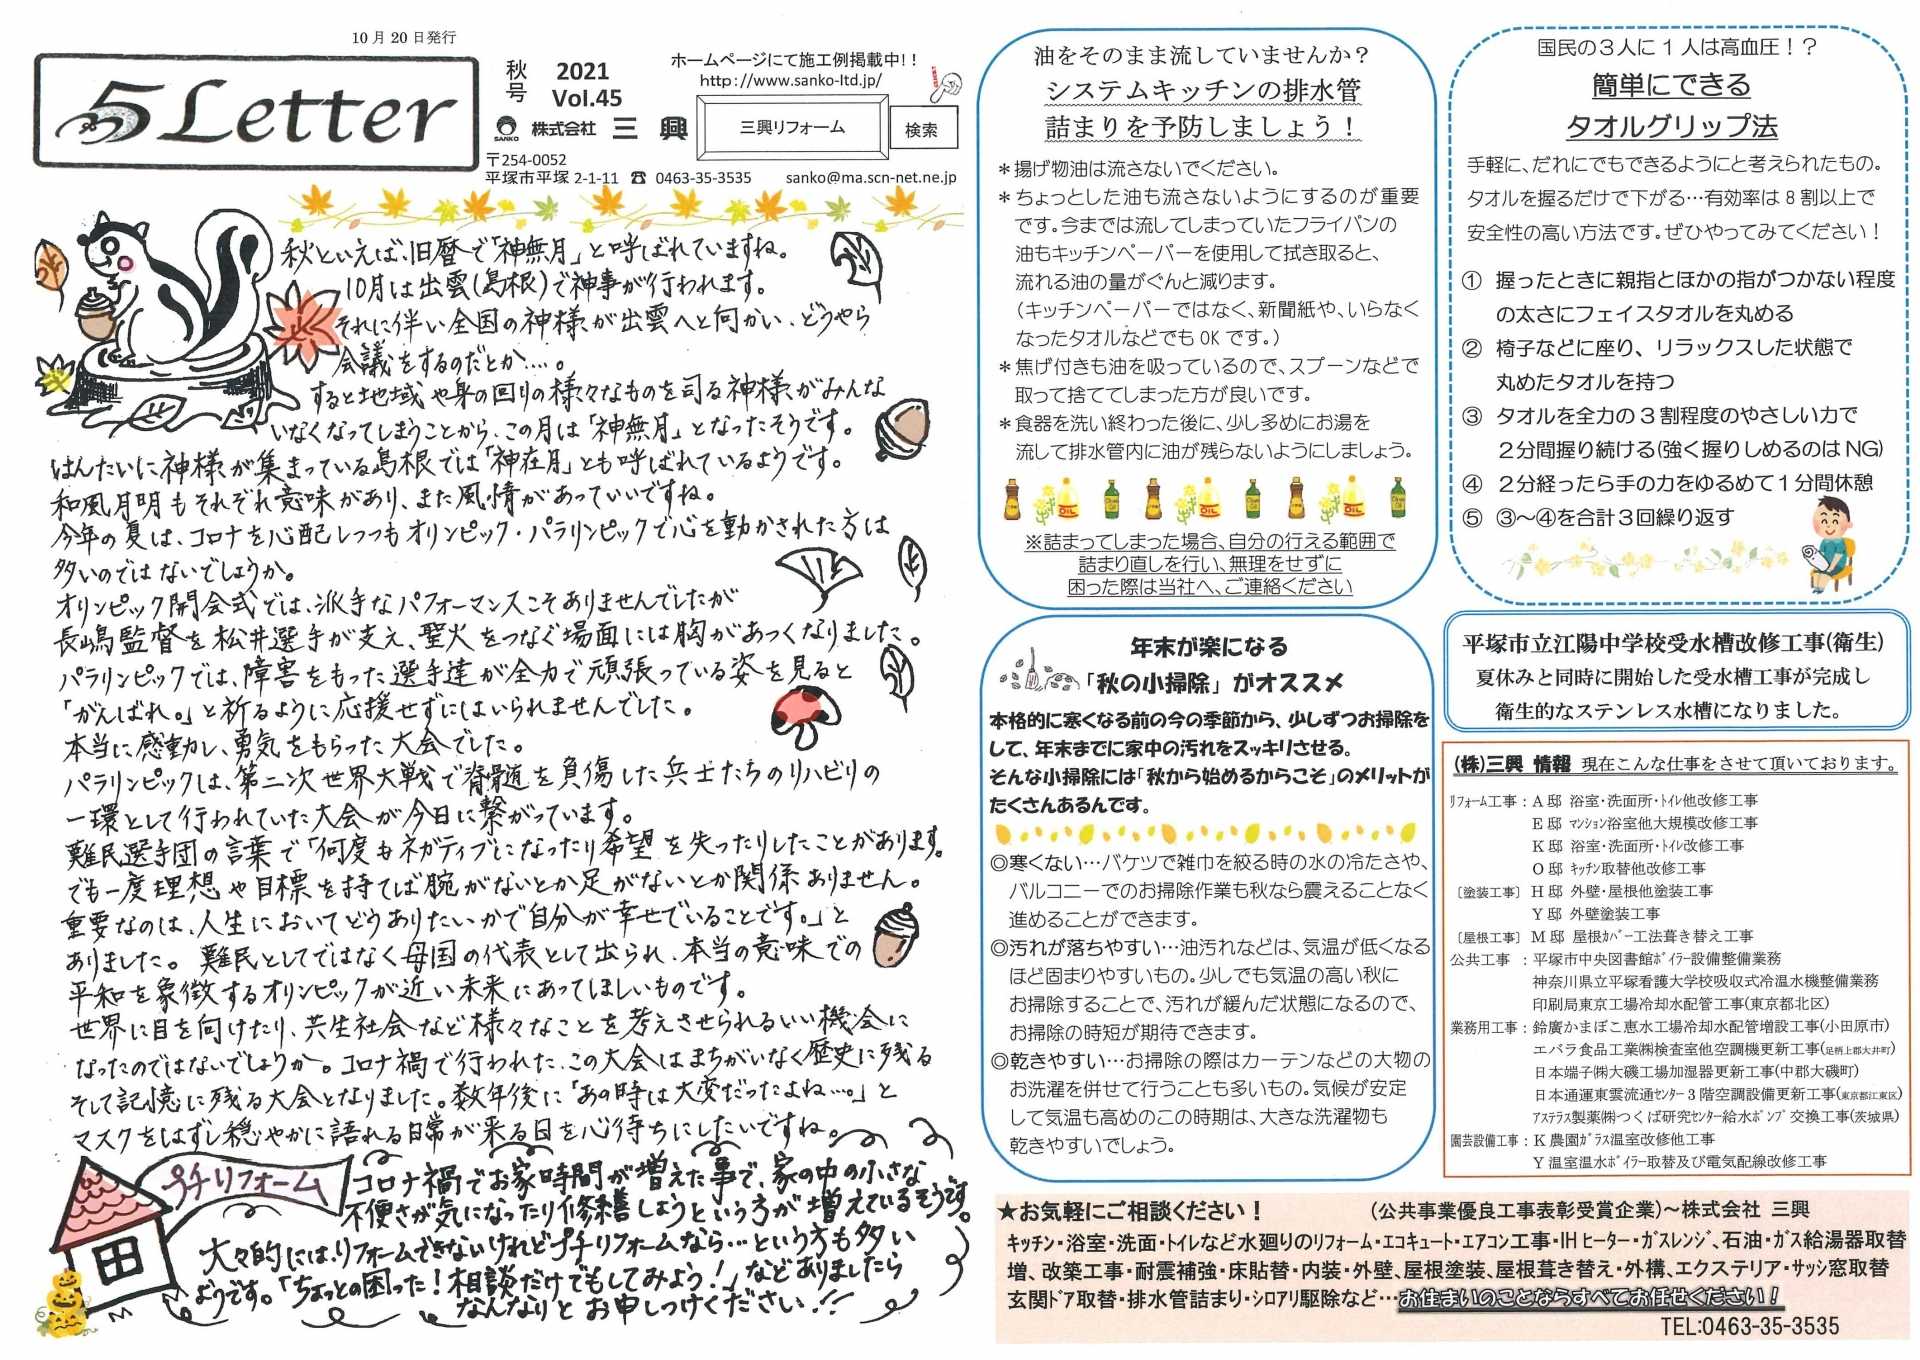 10月20日発行
5 Letter
秋号
2021
Vol.45
SANKO
株式会社 三 興
ホームページにて施工例掲載中!!
http://www.sanko-ltd.jp/
三興リフォーム
検索
〒254-0052
平塚市平塚 2-1-11 ☎ 0463-35-3535 sanko@ma.scn-net.ne.jp
秋といえば、旧暦で「神無月」と呼ばれていますね。
10月は出雲(島根)で神事が行われます。
それに伴い全国の神様が出雲へと向かい、どうやら
会議をするのだとか....。
すると地域や身の回りの様々なものを司る神様がみんな
いなくなってしまうことから、この月は「神無月」となったそうです。
はんたいに神様が集まっている島根では「神在月」とも呼ばれているようです。
和風月明もそれぞれ意味があり、また風情があっていいですね。
今年の夏は、コロナを心配しつつもオリンピック・パラリンピックで心を動かされた方は
多いのではないでしょうか。
オリンピック開会式では、派手なパフォーマンスこそありませんでしたが
長嶋監督を松井選手が支え、聖火をつなぐ場面には胸があつくなりました。
パラリンピックでは、障害をもった選手達が全力で頑張っている姿を見ると
「がんばれ。」と祈るように応援せずにはいられませんでした。
本当に感動し、勇気をもらった大会でした。
パラリンピックは、第二次世界大戦で脊髄を負傷した兵士たちのリハビリの
一環として行われていた大会が今日に繋がっています。
難民選手団の言葉で「何度もネガティブになったり希望を失ったりしたことがあります。
でも一度理想や目標を持てば腕がないとか足がないとか関係ありません。
重要なのは、人生においてどうありたいかで自分が幸せでいることです。」と
ありました。難民としてではなく母国の代表として出られ、本当の意味での
平和を象徴するオリンピックが近い未来にあってほしいものです。
世界に目を向けたり、共生社会など様々なことを考えさせられるいい機会に
なったのではないでしょうか。コロナ禍で行われた、この大会はまちがいなく歴史に残る
そして記憶に残る大会となりました。数年後に「あの時は大変だったよね...。」と
マスクをはずし穏やかに語れる日常が来る日を心待ちにしたいですね。
プチリフォーム
コロナ禍でお家時間が増えた事で、家の中の小さな
不便さが気になったり修繕しようという方が増えているそうです。
大々的にはリフォームできないけれどプチリフォームなら...という方も多い
ようです。「ちょっとの困った!相談だけでもしてみよう!」などありましたら
なんなりとお申しつけください!!
油をそのまま流していませんか?
システムキッチンの排水管
詰まりを予防しましょう!
*揚げ物油は流さないでください。
*ちょっとした油も流さないようにするのが重要
です。今までは流してしまっていたフライパンの
油もキッチンペーパーを使用して拭き取ると、
流れる油の量がぐんと減ります。
(キッチンペーパーではなく、新聞紙や、いらなく
なったタオルなどでも OK です。)
*焦げ付きも油を吸っているので、スプーンなどで
取って捨ててしまった方が良いです。
*食器を洗い終わった後に、少し多めにお湯を
流して排水管内に油が残らないようにしましょう。
OIL
OIL
OIL
※詰まってしまった場合、自分の行える範囲で
詰まり直しを行い、無理をせずに
困った際は当社へ、ご連絡ください
年末が楽になる
「秋の小掃除」がオススメ
本格的に寒くなる前の今の季節から、少しずつお掃除を
して、年末までに家中の汚れをスッキリさせる。
そんな小掃除には「秋から始めるからこそ」のメリットが
たくさんあるんです。
◎寒くない…バケツで雑巾を絞る時の水の冷たさや、
バルコニーでのお掃除作業も秋なら震えることなく
進めることができます。
◎汚れが落ちやすい…油汚れなどは、気温が低くなる
ほど固まりやすいもの。少しでも気温の高い秋に
お掃除することで、汚れが緩んだ状態になるので、
お掃除の時短が期待できます。
◎乾きやすい…お掃除の際はカーテンなどの大物の
お洗濯を併せて行うことも多いもの。気候が安定
して気温も高めのこの時期は、大きな洗濯物も
乾きやすいでしょう。
国民の3人に1人は高血圧!?
簡単にできる
タオルグリップ法
手軽に、だれにでもできるようにと考えられたもの。
タオルを握るだけで下がる…有効率は8割以上で
安全性の高い方法です。ぜひやってみてください!
① 握ったときに親指とほかの指がつかない程度
の太さにフェイスタオルを丸める
② 椅子などに座り、リラックスした状態で
丸めたタオルを持つ
③ タオルを全力の3割程度のやさしい力で
2分間握り続ける(強く握りしめるのはNG)
④ 2分経ったら手の力をゆるめて1分間休憩
⑤ ③~④を合計3回繰り返す
平塚市立江陽中学校受水槽改修工事(衛生)
夏休みと同時に開始した受水槽工事が完成し
衛生的なステンレス水槽になりました。
(株)三興 情報 現在こんな仕事をさせて頂いております。
ﾘﾌｫｰﾑ工事：A邸 浴室・洗面所・ﾄｲﾚ他改修工事
E邸 ﾏﾝｼｮﾝ浴室他大規模改修工事
K邸 浴室・洗面所・ﾄｲﾚ改修工事
O邸 ｷｯﾁﾝ取替他改修工事
〔塗装工事〕H邸 外壁・屋根他塗装工事
Y邸 外壁塗装工事
〔屋根工事〕M邸 屋根ｶﾊﾞｰ工法葺き替え工事
公共工事：平塚市中央図書館ﾎﾞｲﾗｰ設備整備業務
神奈川県立平塚看護大学校吸収式冷温水機整備業務
印刷局東京工場冷却水配管工事(東京都北区)
業務用工事：鈴廣かまぼこ恵水工場冷却水配管増設工事(小田原市)
エバラ食品工業㈱検査室他空調機更新工事(足柄上郡大井町)
日本端子㈱大磯工場加湿器更新工事(中郡大磯町)
日本通運東雲流通ｾﾝﾀｰ3階空調設備更新工事(東京都江東区)
ｱｽﾃﾗｽ製薬㈱つくば研究ｾﾝﾀｰ給水ﾎﾟﾝﾌﾟ交換工事(茨城県)
園芸設備工事：K農園ｶﾞﾗｽ温室改修他工事
Y温室温水ﾎﾞｲﾗｰ取替及び電気配線改修工事
★お気軽にご相談ください! (公共事業優良工事表彰受賞企業)～株式会社 三興
ｷｯﾁﾝ・浴室・洗面・ﾄｲﾚなど水廻りのﾘﾌｫｰﾑ・ｴｺｷｭｰﾄ・ｴｱｺﾝ工事・IHﾋｰﾀｰ・ｶﾞｽﾚﾝｼﾞ、石油・ｶﾞｽ給湯器取替
増、改築工事・耐震補強・床貼替・内装・外壁、屋根塗装、屋根葺き替え・外構、エクステリア・ｻｯｼ窓取替
玄関ﾄﾞｱ取替・排水管詰まり・ｼﾛｱﾘ駆除など…お住まいのことならすべてお任せください!
TEL:0463-35-3535